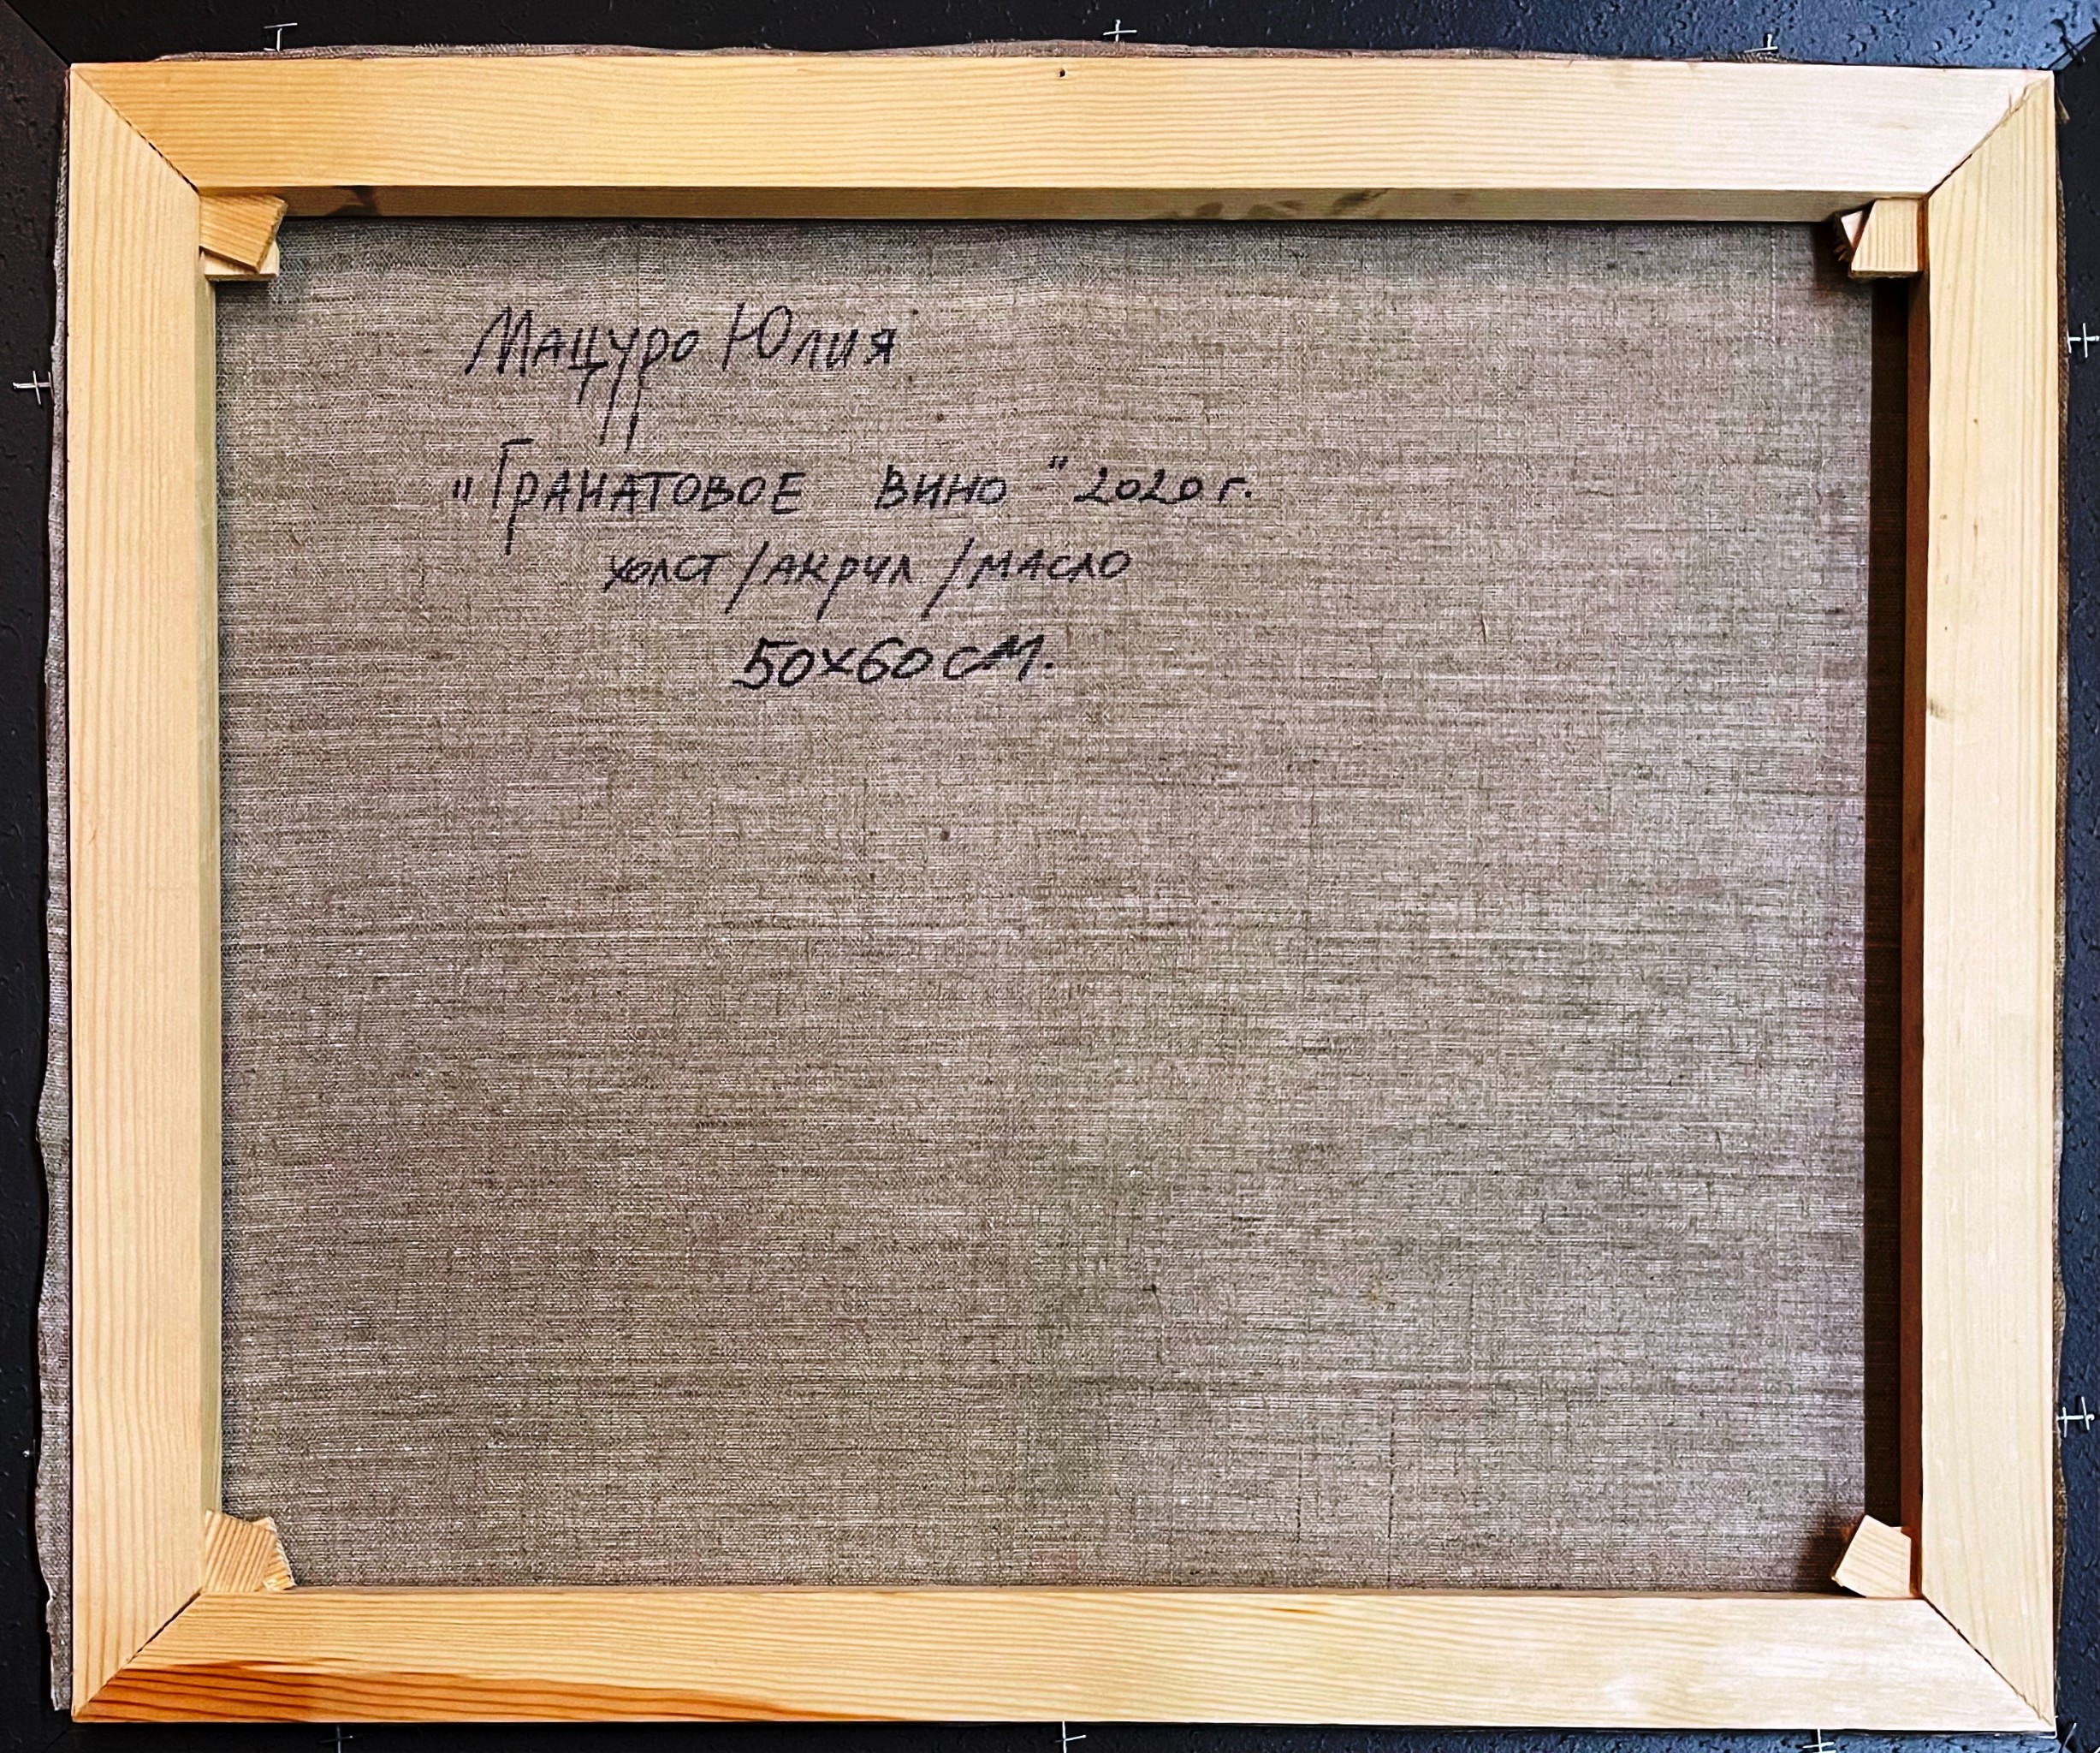 Мацуро Юлия
"Гранатовое вино" 2020 г.
холст/акрил/масло
50x60 см.